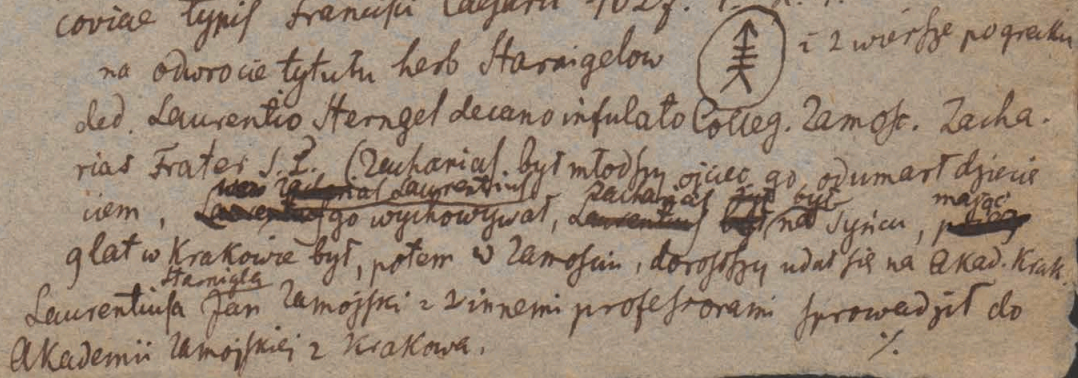 coviae typis Francisci Caesarii 1627.
na odwrocie tytułu herb Starnigelow i 2 wiersze po grecku
ded. Laurentio Sterngel decano infulato Colleg. Zamosc. Zacha-
rias Frater S. P. (Zacharias był młodszy, ojciec go odumarł dziecię
Laurentius Zacharias był mając
ciem, go wychowywał, na Sysicu,
9 lat w Krakowie był, potem w Zamościu, dorosłszy udał się na Akad. Krak.
Starnigla
Laurentiusa Jan Zamojski z innemi profesorami sprowadził do
Akademii Zamojskiej z Krakowa.